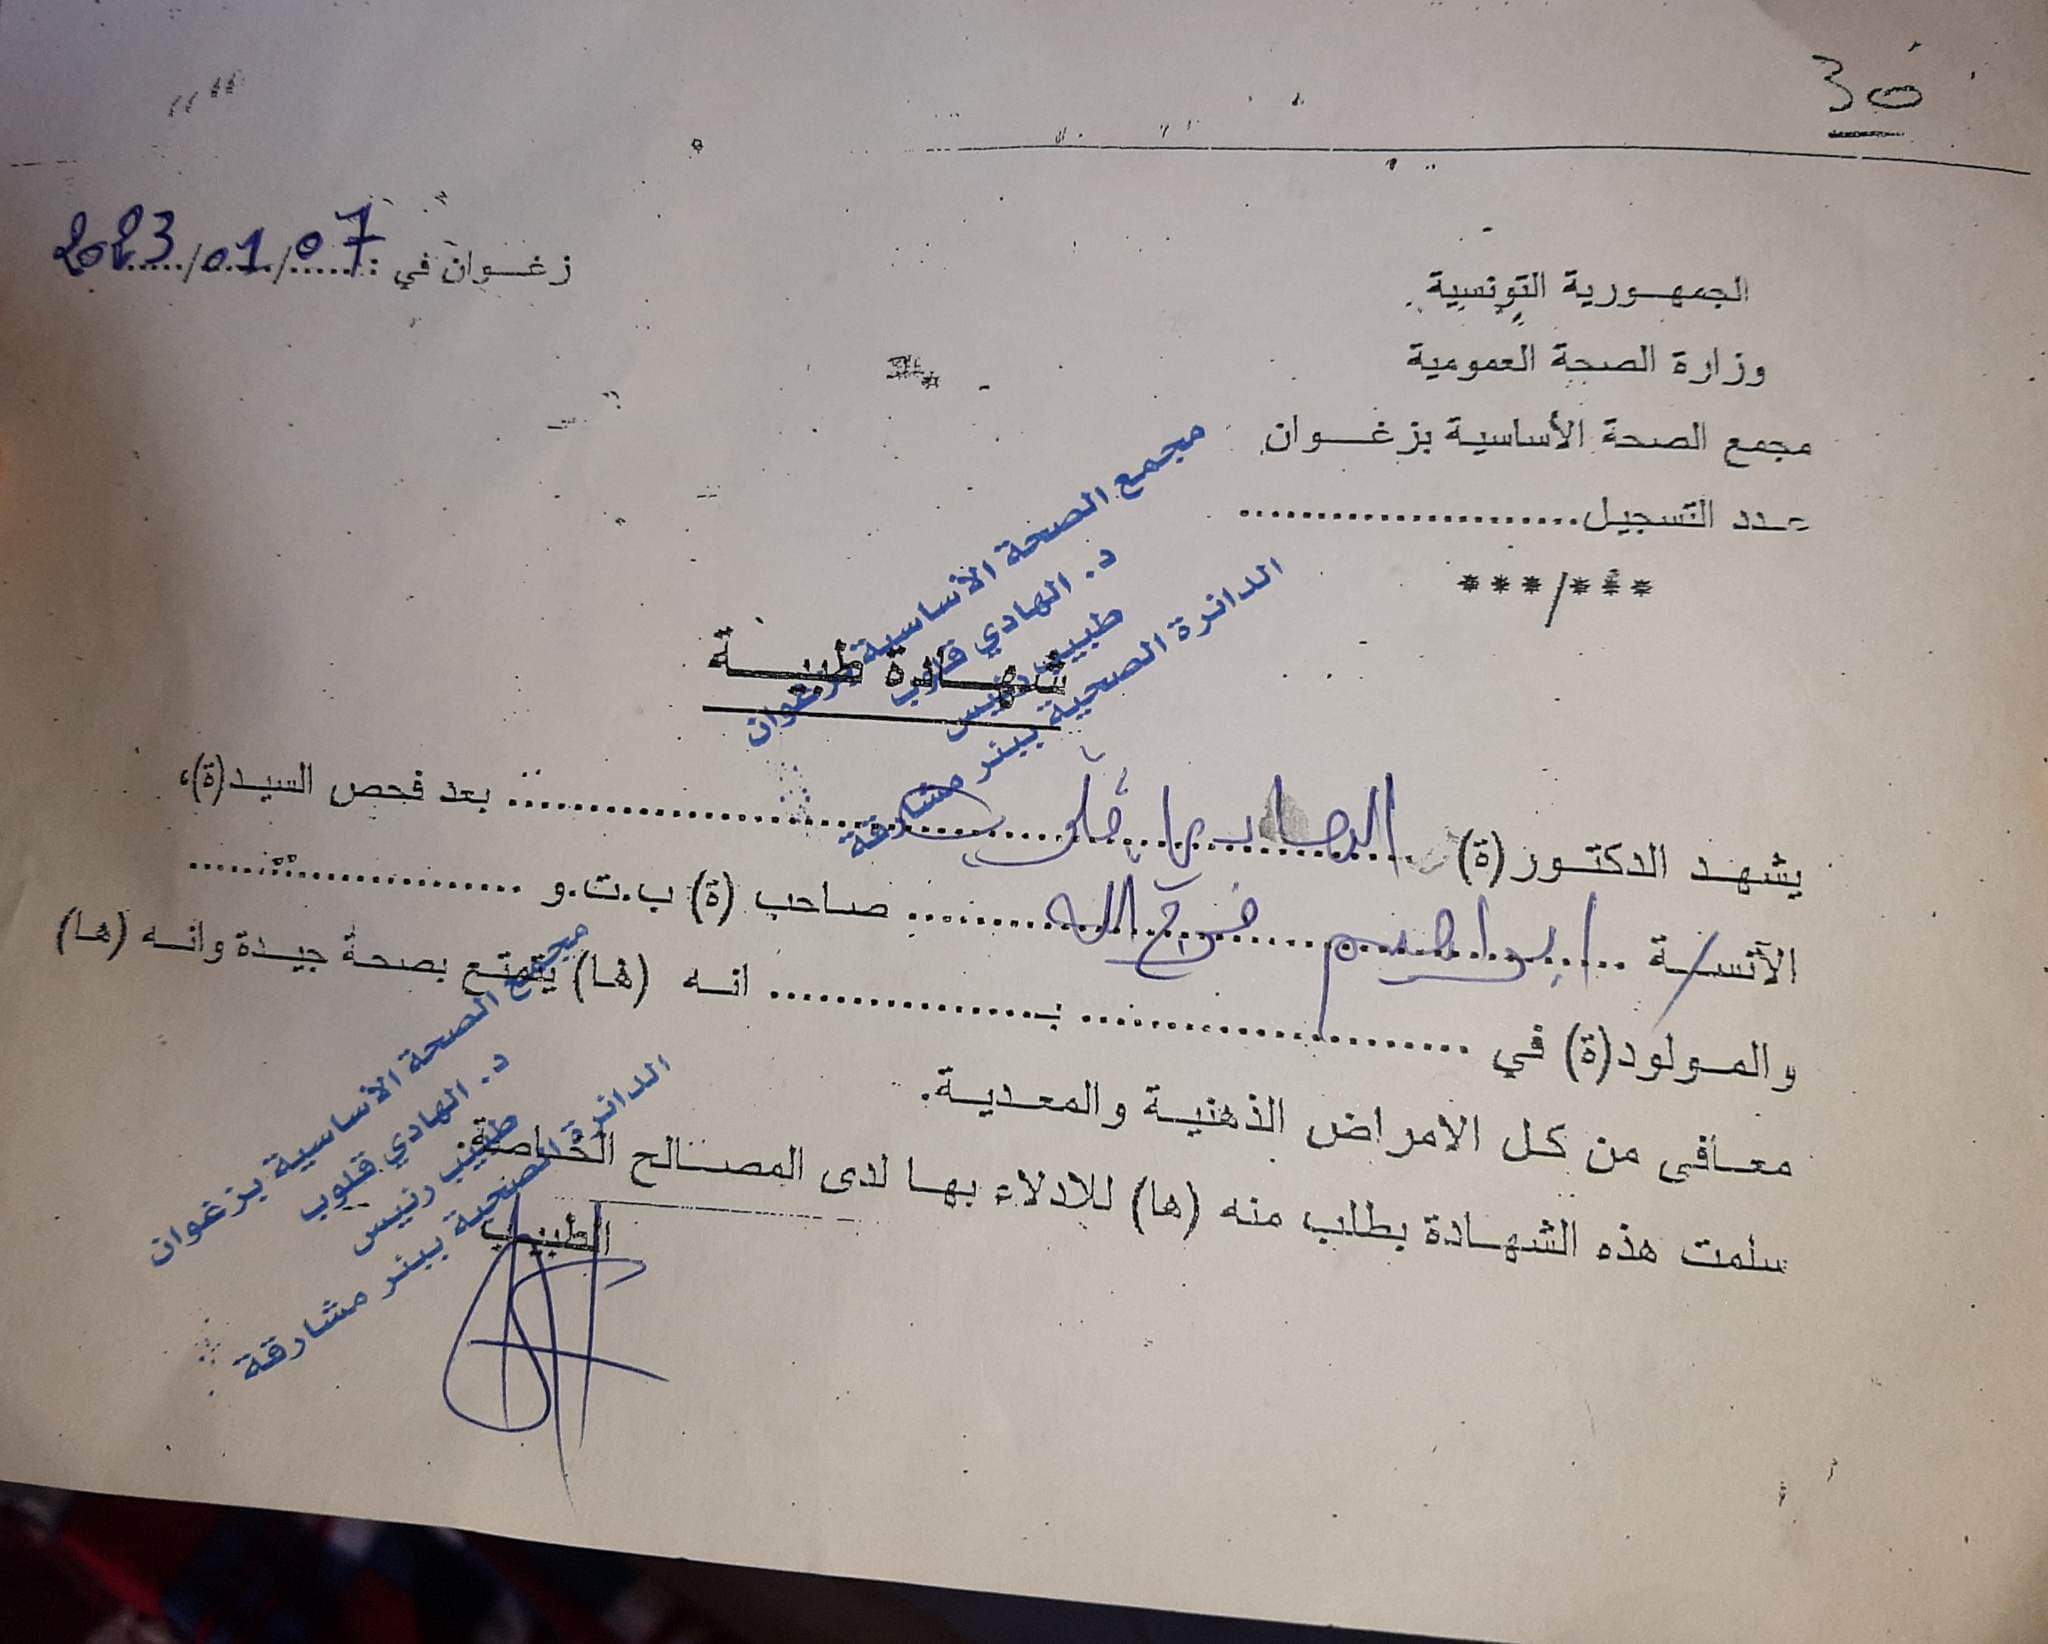 30
زغوان في : 07/01/2023
الجمهورية التونسية
وزارة الصحة العمومية
مجمع الصحة الأساسية بزغوان
عدد التسجيل......................
***/***
شهادة طبية
مجمع الصحة الأساسية بزغوان
د. الهادي قلوب
طبيب رئيس
الدائرة الصحية ببئر مشارقة
يشهد الدكتور(ة) الهادي قلوب بعد فحص السيد(ة)،
الآنسة / ابراهيم فرج الله صاحب (ة) ب.ت.و ......................
والمولود(ة) في ...................... بـ................ انه (ها) يتمتع بصحة جيدة وانه (ها)
معافى من كل الامراض الذهنية والمعدية.
سلمت هذه الشهادة بطلب منه (ها) للادلاء بها لدى المصالح الخاصة.
الطبيب
مجمع الصحة الأساسية بزغوان
د. الهادي قلوب
طبيب رئيس
الدائرة الصحية ببئر مشارقة